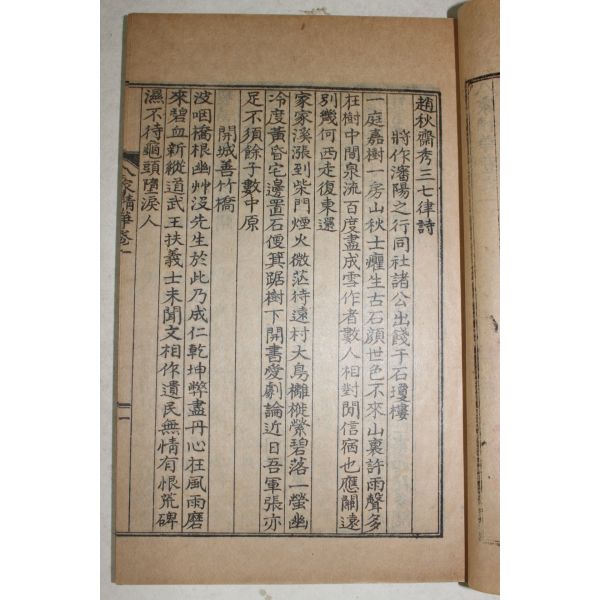 趙秋齋秀三七律詩
將作瀋陽之行同社諸公出餞于石瓊樓
一庭嘉樹一房山秋士癯生古石顔世色不來山裏許雨聲多
在樹中間泉流百度盡成雪作者數人相對閒信宿也應關遠
別幾何西走復東還
家家溪漲到柴門煙火微茫待遠村大鳥襳褷縈碧落一螢幽
冷度黃昏宅邊置石便箕踞樹下開書愛劇論近日吾軍張亦
足不須餘子數中原
開城善竹橋
波咽橋根幽艸沒先生於此乃成仁乾坤弊盡丹心在風雨磨
來碧血新縱道武王扶義士未聞文相作遺民無情有恨荒碑
濕不待龜頭墮淚人
八家精華卷一
二